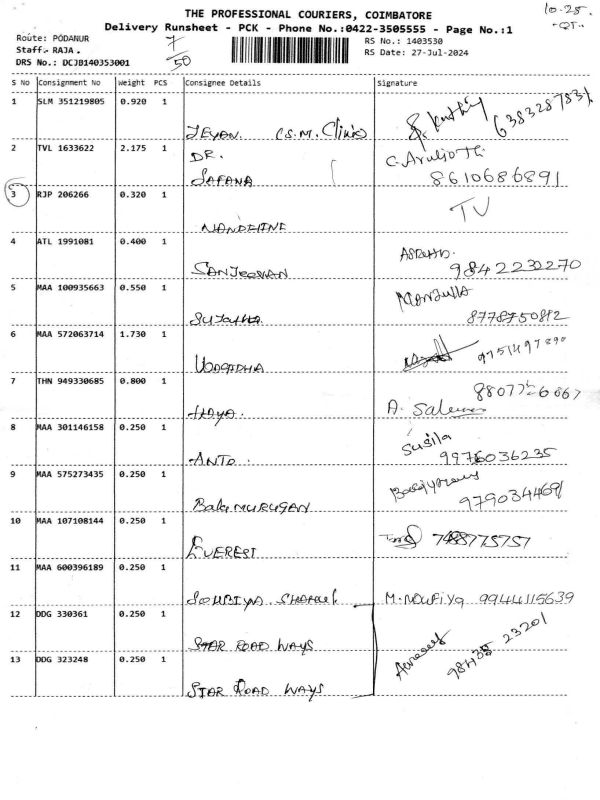 THE PROFESSIONAL COURIERS, COIMBATORE
10-25.
Delivery Runsheet - PCK - Phone No.:0422-3505555 - Page No.:1
-QT-
Route: PODANUR
7/50
RS No.: 1403530
Staff:- RAJA.
RS Date: 27-Jul-2024
DRS No.: DCJB140353001
S No Consignment No Weight PCS Consignee Details Signature
1 SLM 351219805 0.920 1
JEYAN. (S.M. Clinic)
2 TVL 1633622 2.175 1 DR.
SAFANA 8610686891
3 RJP 206266 0.320 1
TV
NANDHINI
4 ATL 1991081 0.400 1
SANJEEVAN 9842230270
5 MAA 100935663 0.550 1
Manjulla
SUJATHA 8778750812
6 MAA 572063714 1.730 1
7 THN 949330685 0.800 1
A.
8 MAA 301146158 0.250 1 Susila
ANTO. 9976036235
9 MAA 575273435 0.250 1
Bala MURUGAN 9790344691
10 MAA 107108144 0.250 1
EVEREST
11 MAA 600396189 0.250 1
9944115639
12 DDG 330361 0.250 1
STAR ROAD WAYS
13 DDG 323248 0.250 1
STAR ROAD WAYS